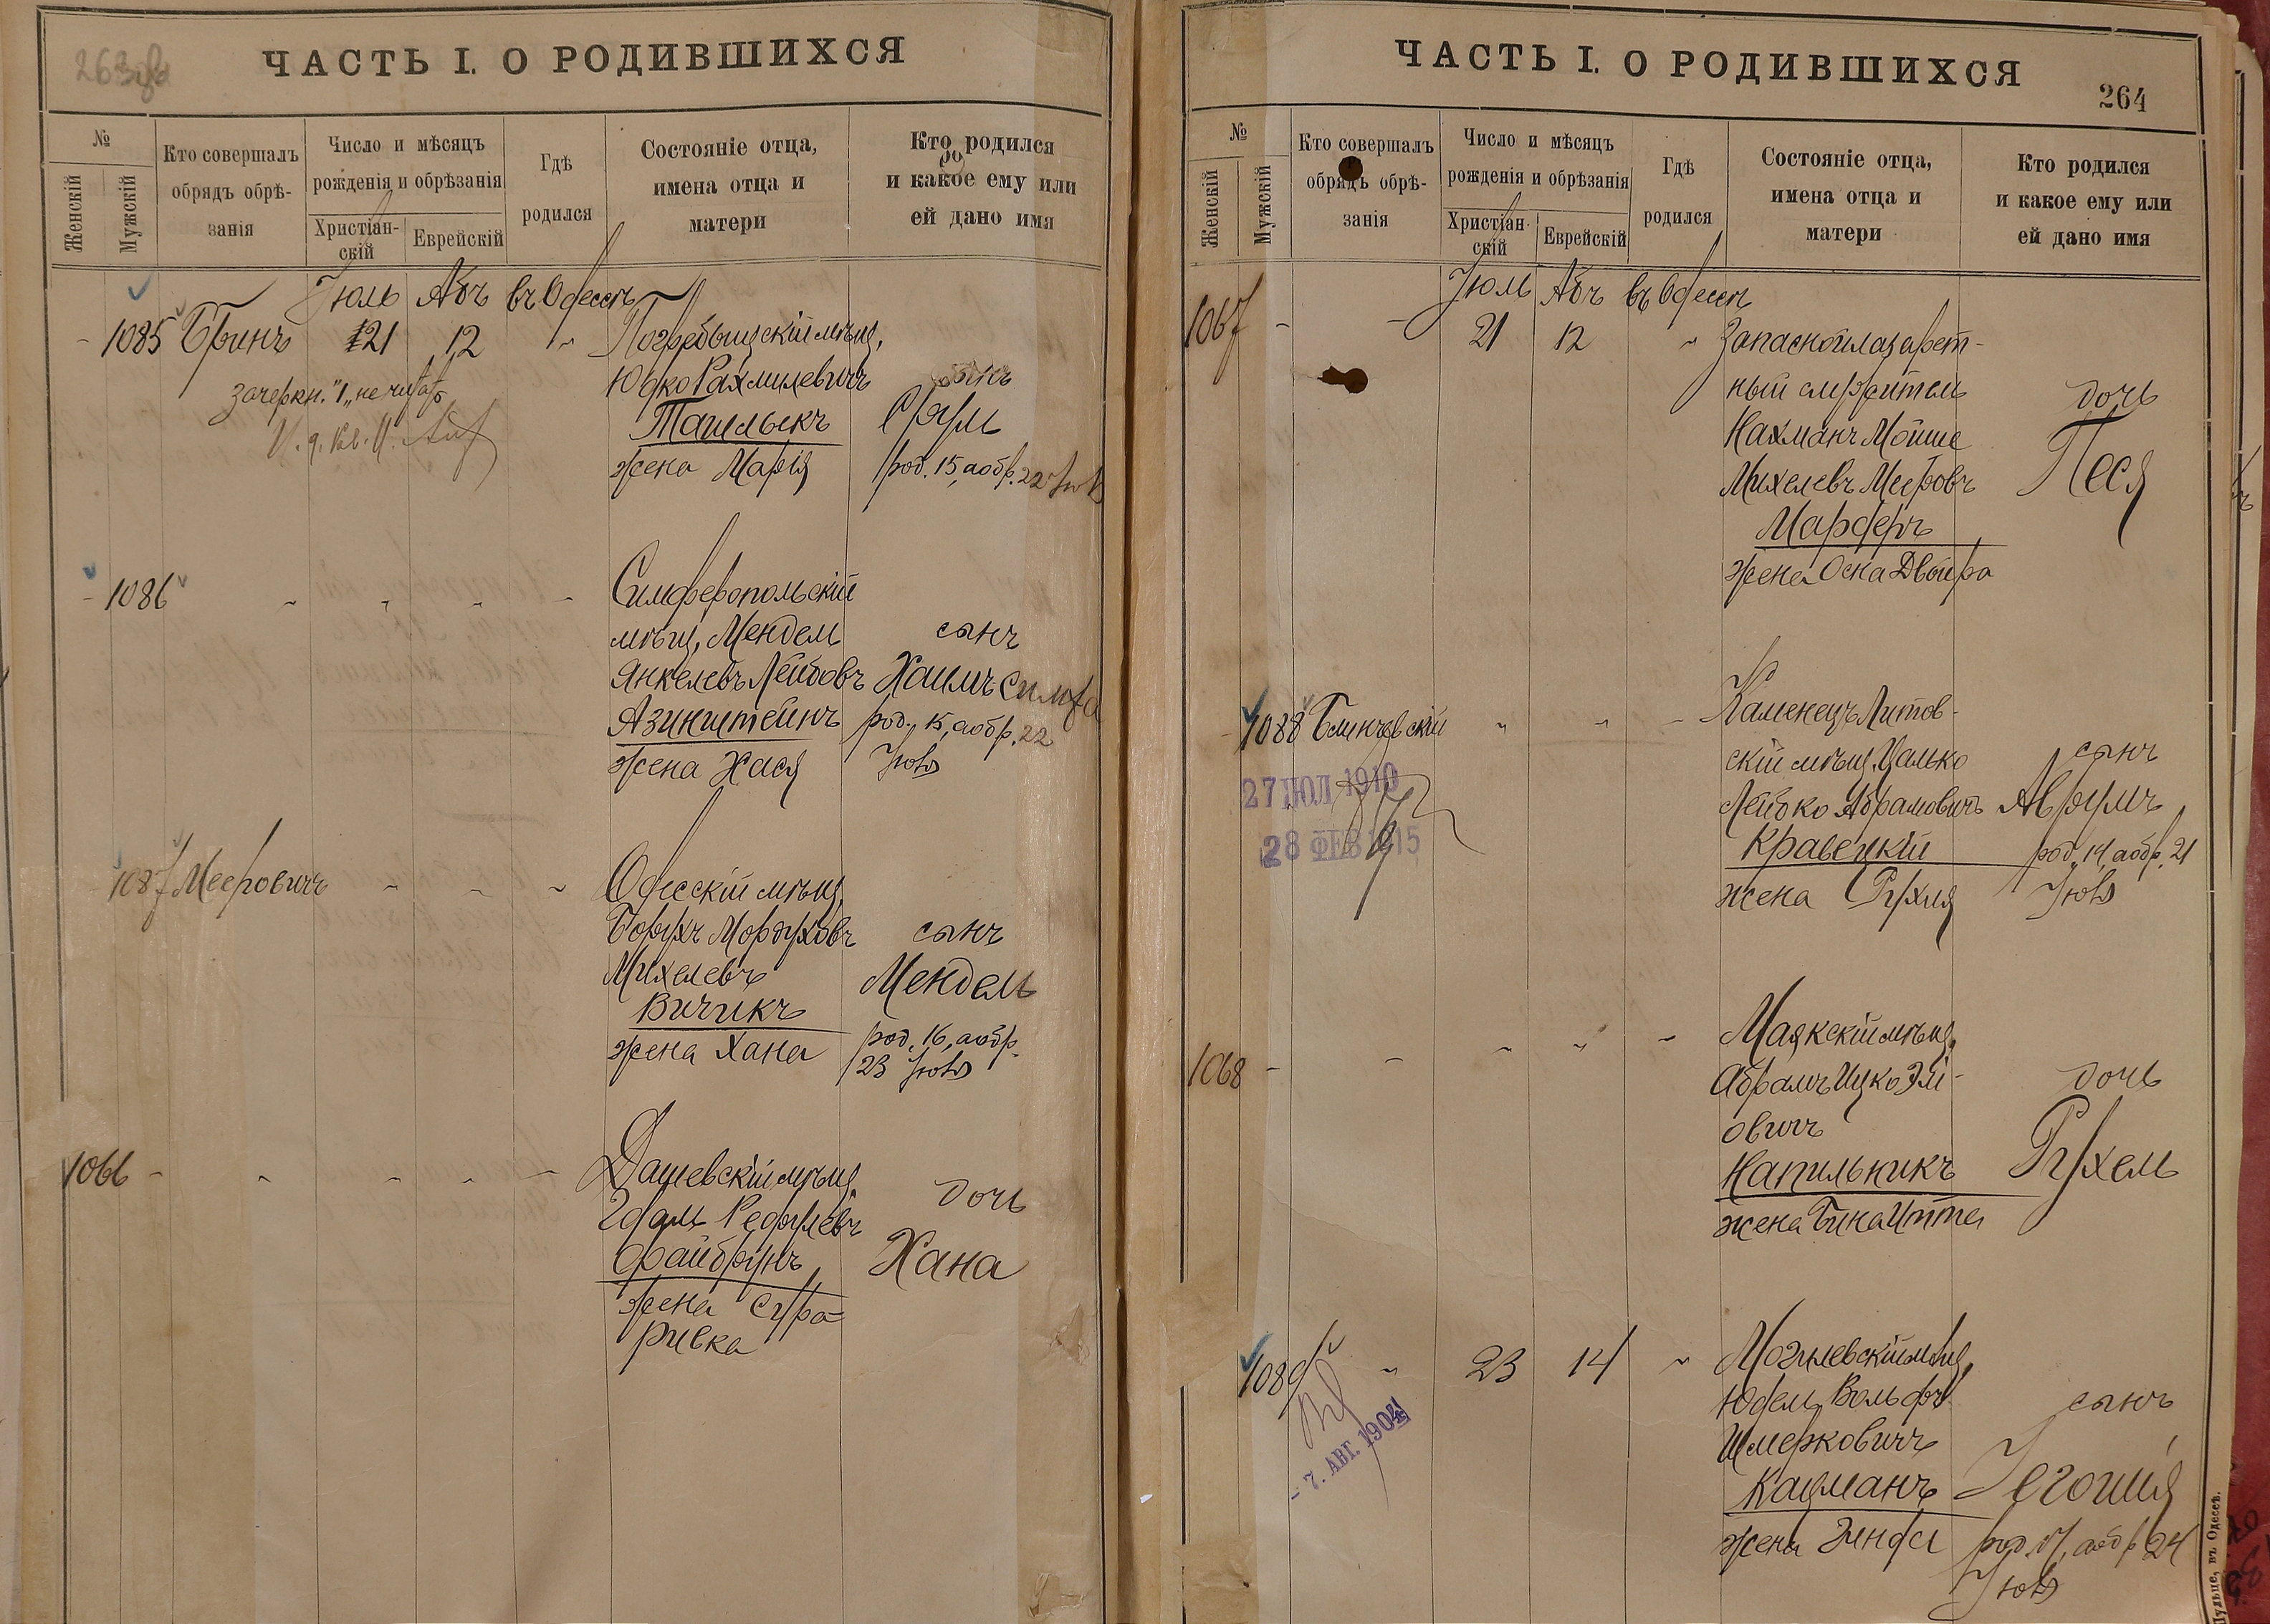 263об
ЧАСТЬ I. О РОДИВШИХСЯ
№
Женскій
Мужскій
Кто совершалъ
обрядъ обрѣ-
занія
Число и мѣсяцъ
рожденія и обрѣзанія
Христіан-
скій
Еврейскій
Гдѣ
родился
Состояніе отца,
имена отца и
матери
Кто родился
и какое ему или
ей дано имя
Іюль Абъ въ Одессѣ
1085 Бринъ 21 12 " Погребыщскій мѣщ.
Юдко Рахмилевичъ сынъ
зачеркн. "1" не читать
Ташлыкъ Срул
жена Марія род. 15, а обр. 22 Іюля
1086 " " " " Симферопольскій
мѣщ. Мендель сынъ
Янкелевъ Лейбовъ Хаимъ Симха
Азинштейнъ род. 15, а обр. 22
жена Хася Іюля
1087 Мееровичъ " " " Одесскій мѣщ.
Борухъ Мордуховъ сынъ
Михелевъ Мендель
Вичикъ
жена Хана род. 16, а обр.
23 Іюля
1066 - " " " " Дашевскій мѣщ.
дочь
Файбрунъ Хана
жена Сура-
Ривка
ЧАСТЬ I. О РОДИВШИХСЯ
264
№
Женскій
Мужскій
Кто совершалъ
обрядъ обрѣ-
занія
Число и мѣсяцъ
рожденія и обрѣзанія
Христіан-
скій
Еврейскій
Гдѣ
родился
Состояніе отца,
имена отца и
матери
Кто родился
и какое ему или
ей дано имя
Іюль Абъ въ Одессѣ
1067 - - 21 12 " Запасной лазарет-
ный служитель дочь
Нахманъ Мойше
Михелевъ Мееровъ Песя
Мардеръ
жена Осна Двойра
1088 Блинчевскій " " " Каменецъ Литов-
скій мѣщ. Цалько сынъ
27 ІЮЛ 1910
Лейбко Абрамовичъ Аврумъ
28 ФЕВ 1915
Кравецкій род. 14, а обр. 21
жена Рухля Іюля
1068 - - " " " Маякскій мѣщ.
Абрамъ Ицко Элі- дочь
овичъ
Напильникъ Рухель
жена Бина Итта
1089 " 23 14 " Могилевскій мѣщ.
Юдель Вольфъ сынъ
Шмерковичъ
- 7. АВГ. 1904
Кацманъ Іегошія
жена Зинда род. 17, а обр. 24
Іюля